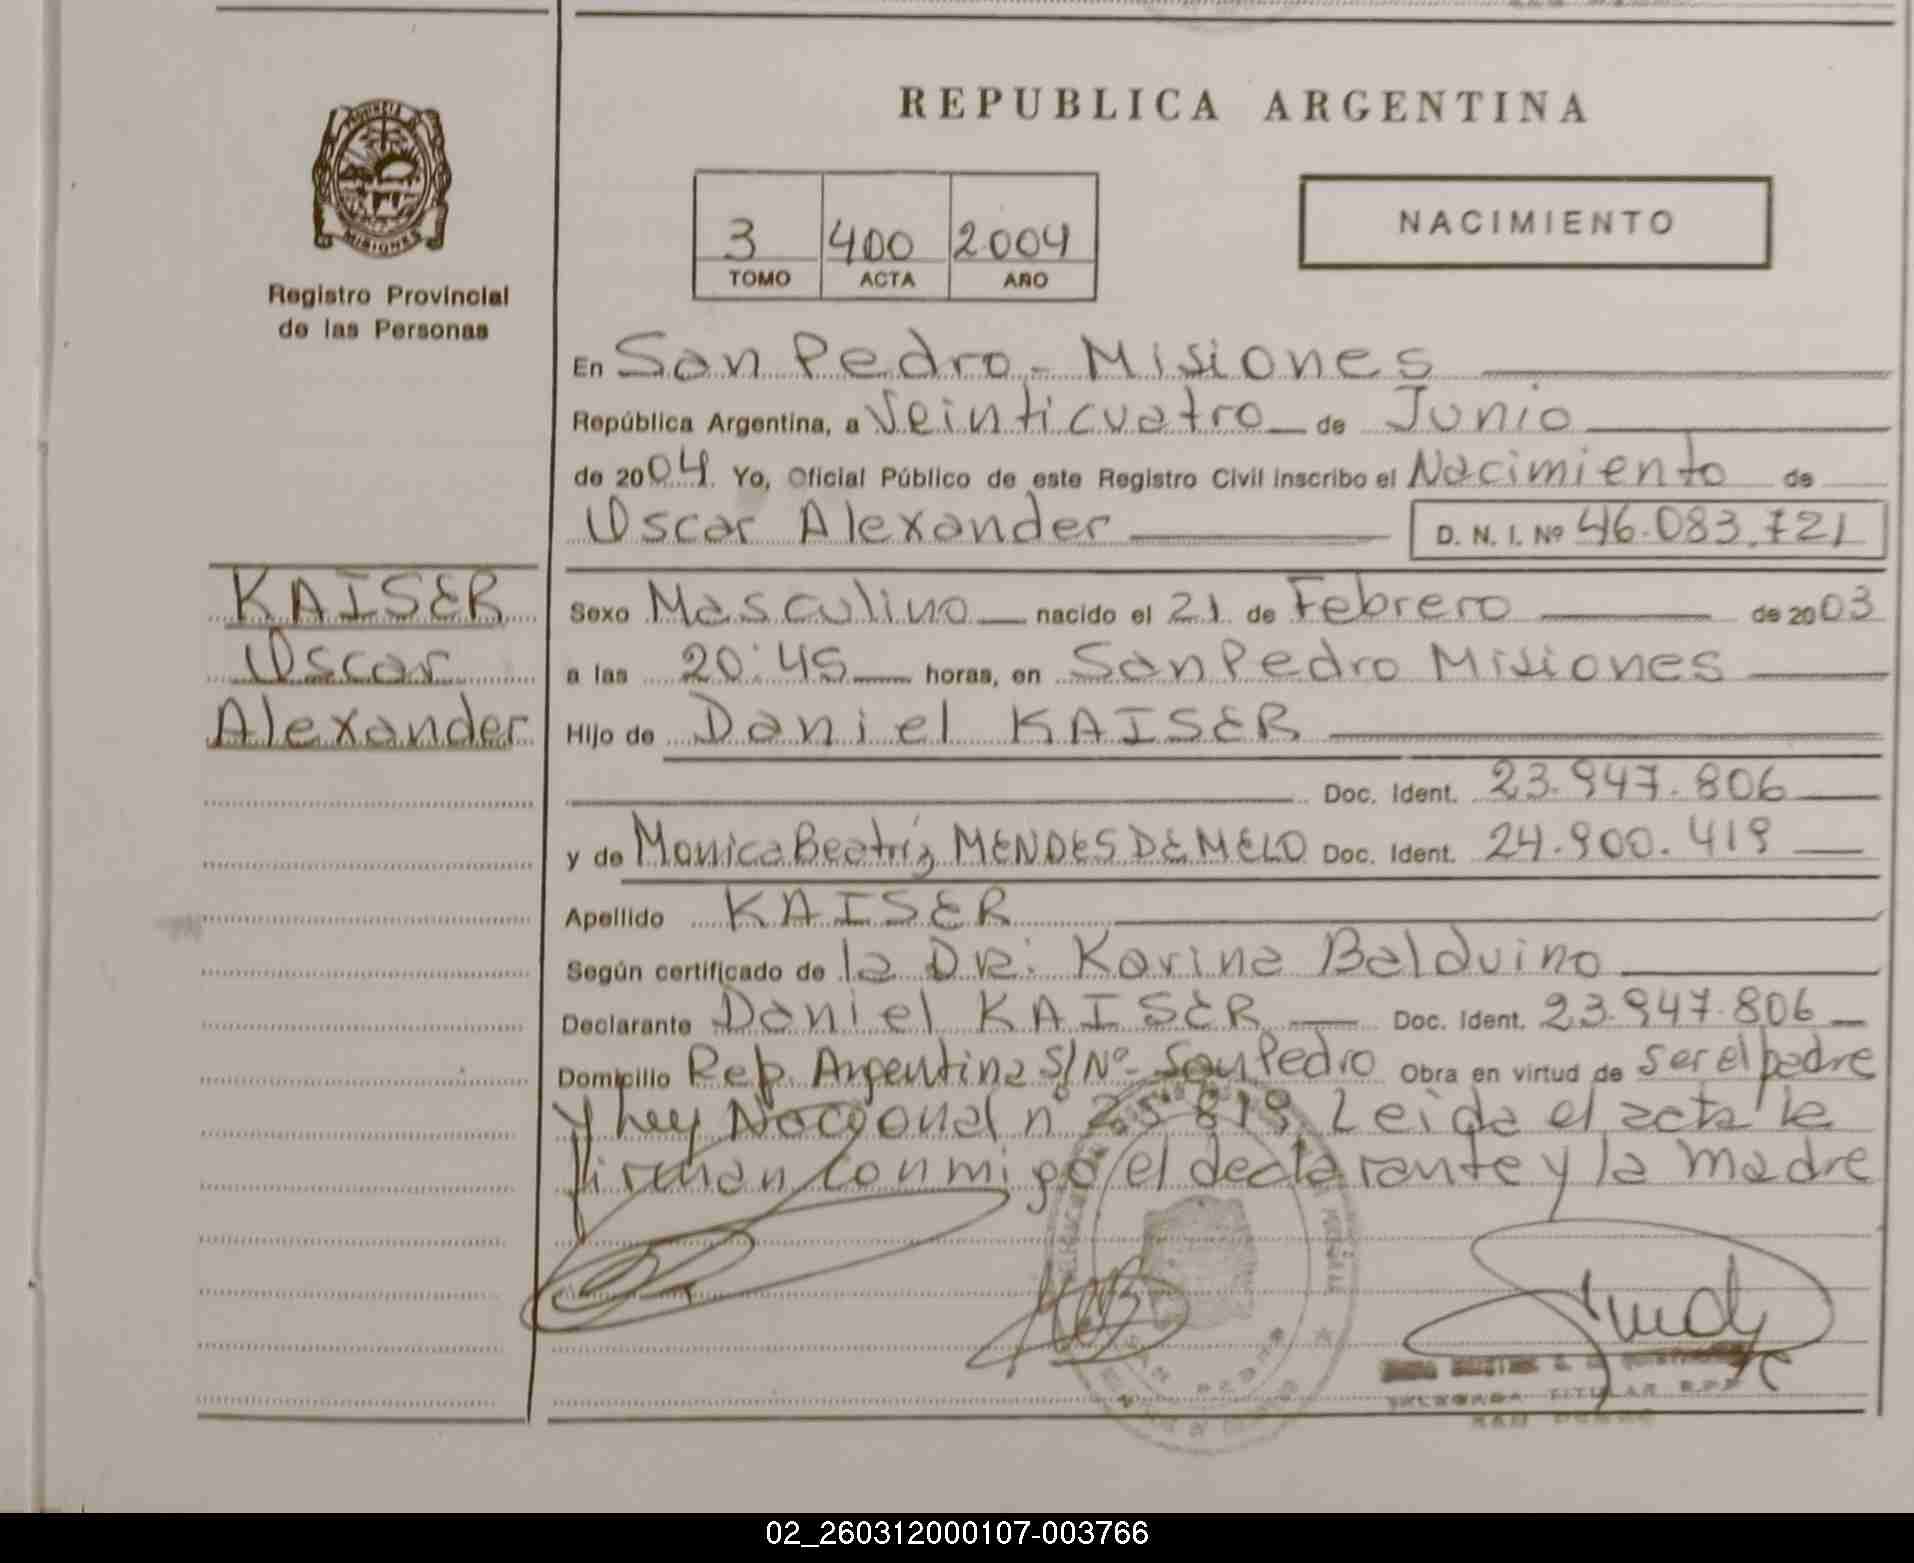 REPUBLICA ARGENTINA
PROVINCIA
MISIONES
Registro Provincial
de las Personas
3 400 2004
TOMO ACTA AÑO
NACIMIENTO
En San Pedro - Misiones
República Argentina, a Veinticuatro de Junio
de 2004. Yo, Oficial Público de este Registro Civil inscribo el Nacimiento de
Oscar Alexander D. N. I. Nº 46.083.721
KAISER
Oscar
Alexander
Sexo Masculino nacido el 21 de Febrero de 2003
a las 20:45 horas, en San Pedro Misiones
Hijo de Daniel KAISER
Doc. Ident. 23.947.806
y de Monica Beatríz MENDES DE MELO Doc. Ident. 24.900.419
Apellido KAISER
Según certificado de la Dra: Karina Balduino
Declarante Daniel KAISER Doc. Ident. 23.947.806
Domicilio Rep. Argentina S/Nº- San Pedro Obra en virtud de ser el padre
y ley Nacional nº 25.819 Leida el acta la
firman conmigo el declarante y la madre
TITULAR R.P.P.
SAN PEDRO
02_260312000107-003766